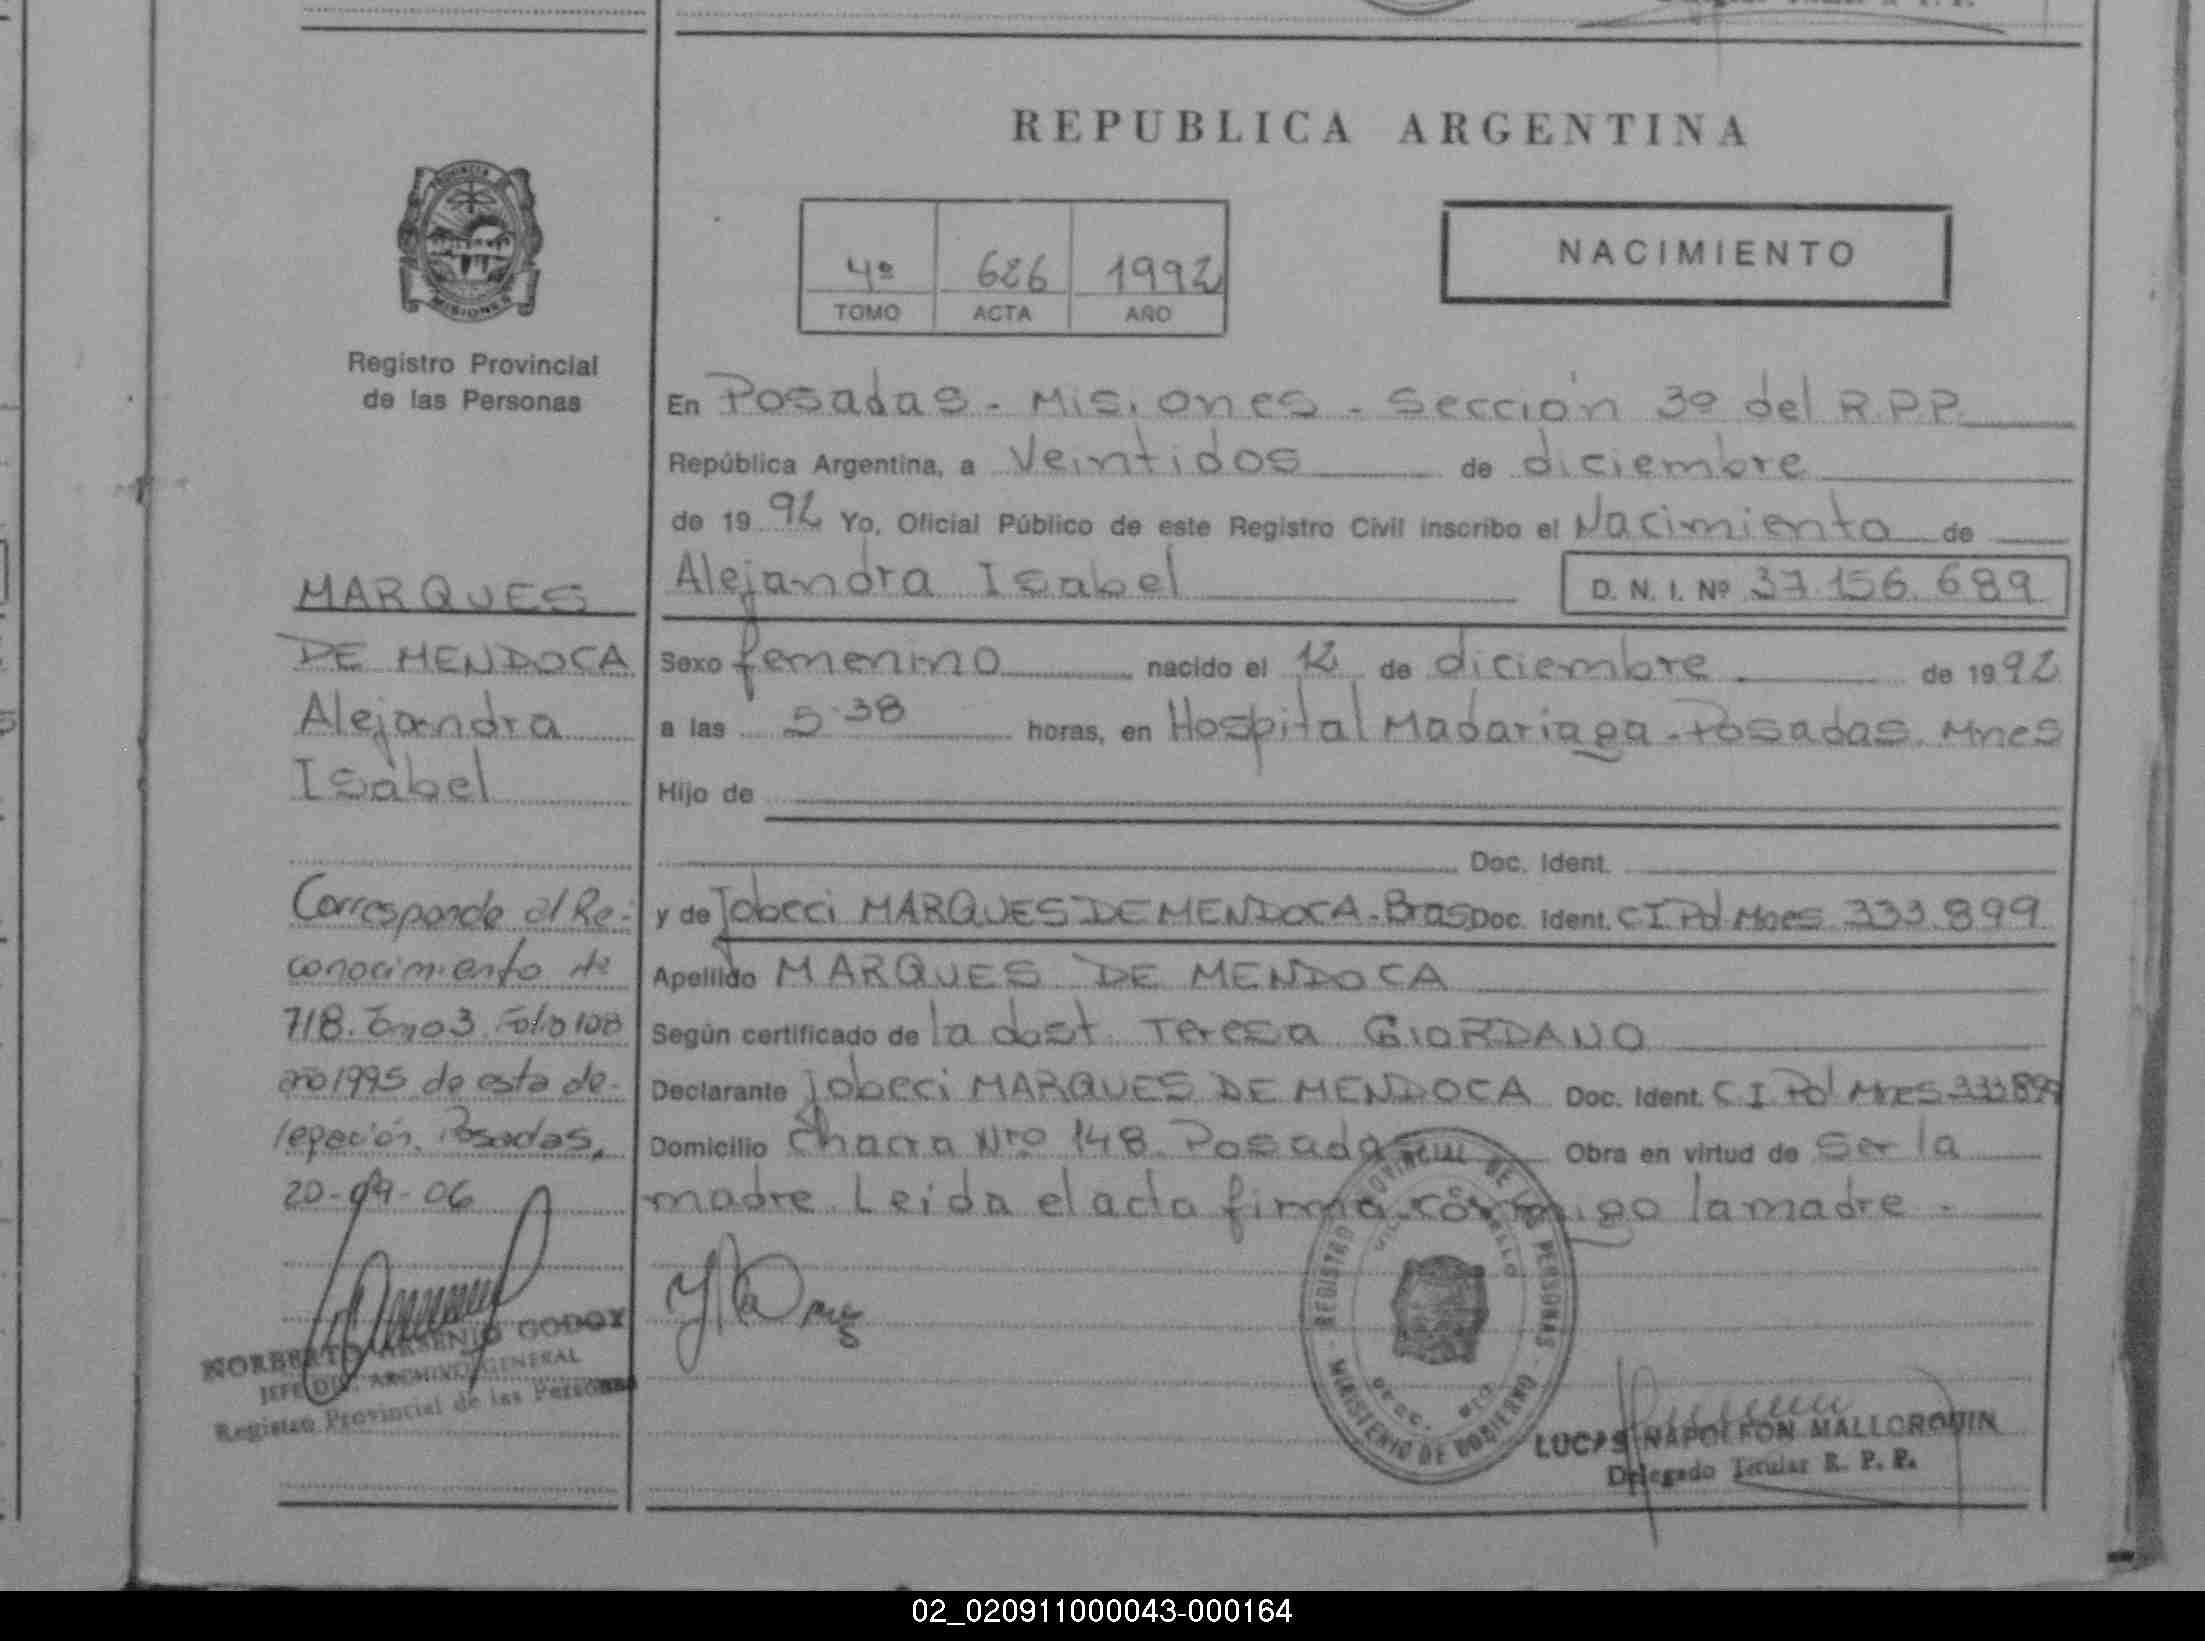 REPUBLICA ARGENTINA
NACIMIENTO
4º 626 1992
TOMO ACTA AÑO
PROVINCIA
MISIONES
Registro Provincial
de las Personas
En Posadas - Misiones - Sección 3º del R.P.P.
República Argentina, a Veintidos de diciembre
de 1992 Yo, Oficial Público de este Registro Civil inscribo el Nacimiento de
Alejandra Isabel D. N. I. Nº 37.156.689
Sexo femenino nacido el 12 de diciembre de 1992
a las 5.38 horas, en Hospital Madariaga - Posadas. Mnes
Hijo de
Doc. Ident.
y de Jobeci MARQUES DE MENDOCA - Bras Doc. Ident. C I Pol Mnes 333.899
Apellido MARQUES DE MENDOCA
Según certificado de la dost. Teresa GIORDANO
Declarante Jobeci MARQUES DE MENDOCA Doc. Ident. C I Pol Mnes 333899
Domicilio Chacra Nro 148. Posadas Obra en virtud de Ser la
madre. Leida el acta firma conmigo la madre.-
MARQUES
DE MENDOCA
Alejandra
Isabel
Corresponde al Re-
conocimiento
718. Tomo 3. Folio 108
año 1995 de esta de-
legación. Posadas,
20-09-06
NORBERTO ARSENIO GODOY
JEFE DIV. ARCHIVO GENERAL
Registro Provincial de las Personas
REGISTRO PROVINCIAL DE LAS PERSONAS
MINISTERIO DE GOBIERNO
LUCAS NAPOLEON MALLORQUIN
Delegado Titular R. P. P.
02_020911000043-000164